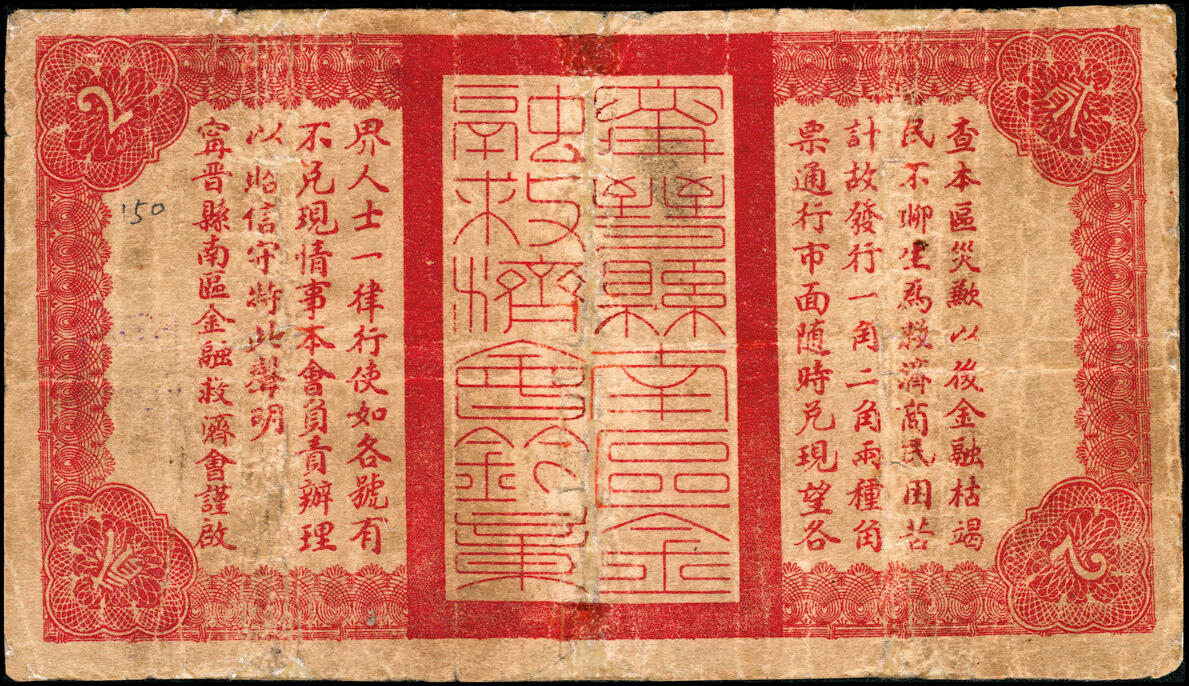 2
貳
查本區災歉以後金融枯竭
民不聊生爲救濟商民困苦
計故發行一角二角兩種角
票通行市面随時兌現望各
寧晉縣南區金
融救濟會鈐章
界人士一律行使如各號有
不兌現情事本會負責辦理
以昭信守特此聲明
寗晉縣南區金融救濟會謹啟
150
貳
2